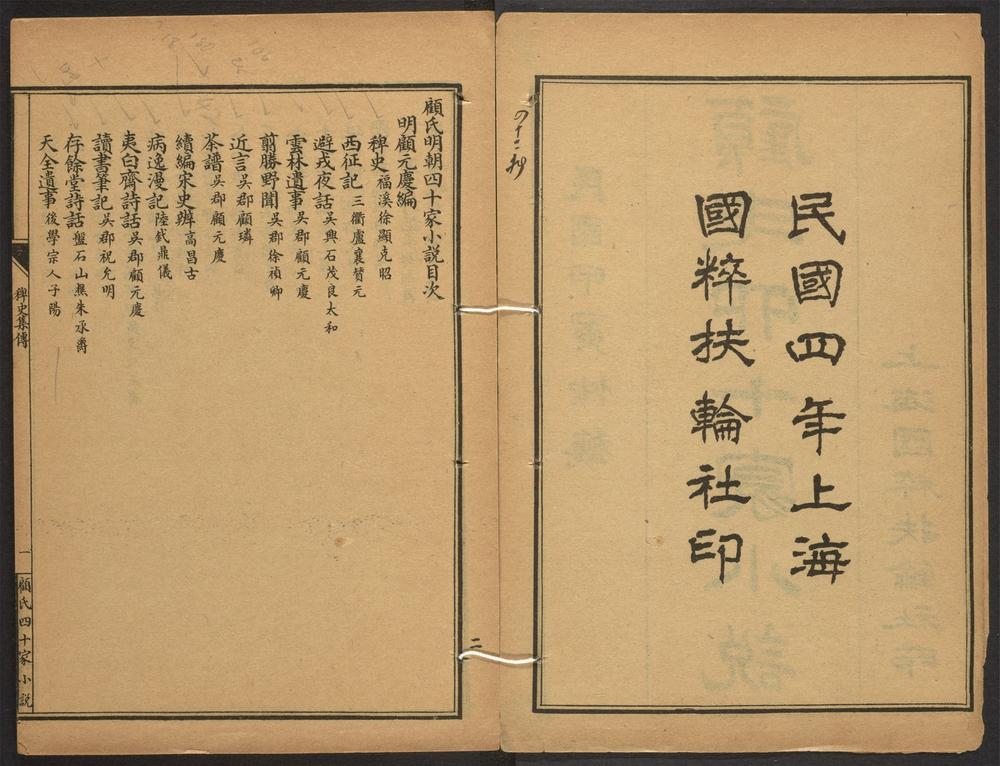 民國四年上海
國粹扶輪社印
顧氏明朝四十家小說目次
明顧元慶編
稗史 福溪徐顯克昭
西征記 三衢盧襄贊元
避戎夜話 吳興石茂良太和
雲林遺事 吳郡顧元慶
翦勝野聞 吳郡徐禎卿
近言 吳郡顧璘
茶譜 吳郡顧元慶
續編宋史辨 高昌古
病逸漫記 陸釴鼎儀
夷白齋詩話 吳郡顧元慶
讀書筆記 吳郡祝允明
存餘堂詩話 盤石山樵朱承爵
天全遺事 後學宗人子陽
稗史集傳
一
顧氏四十家小說
二